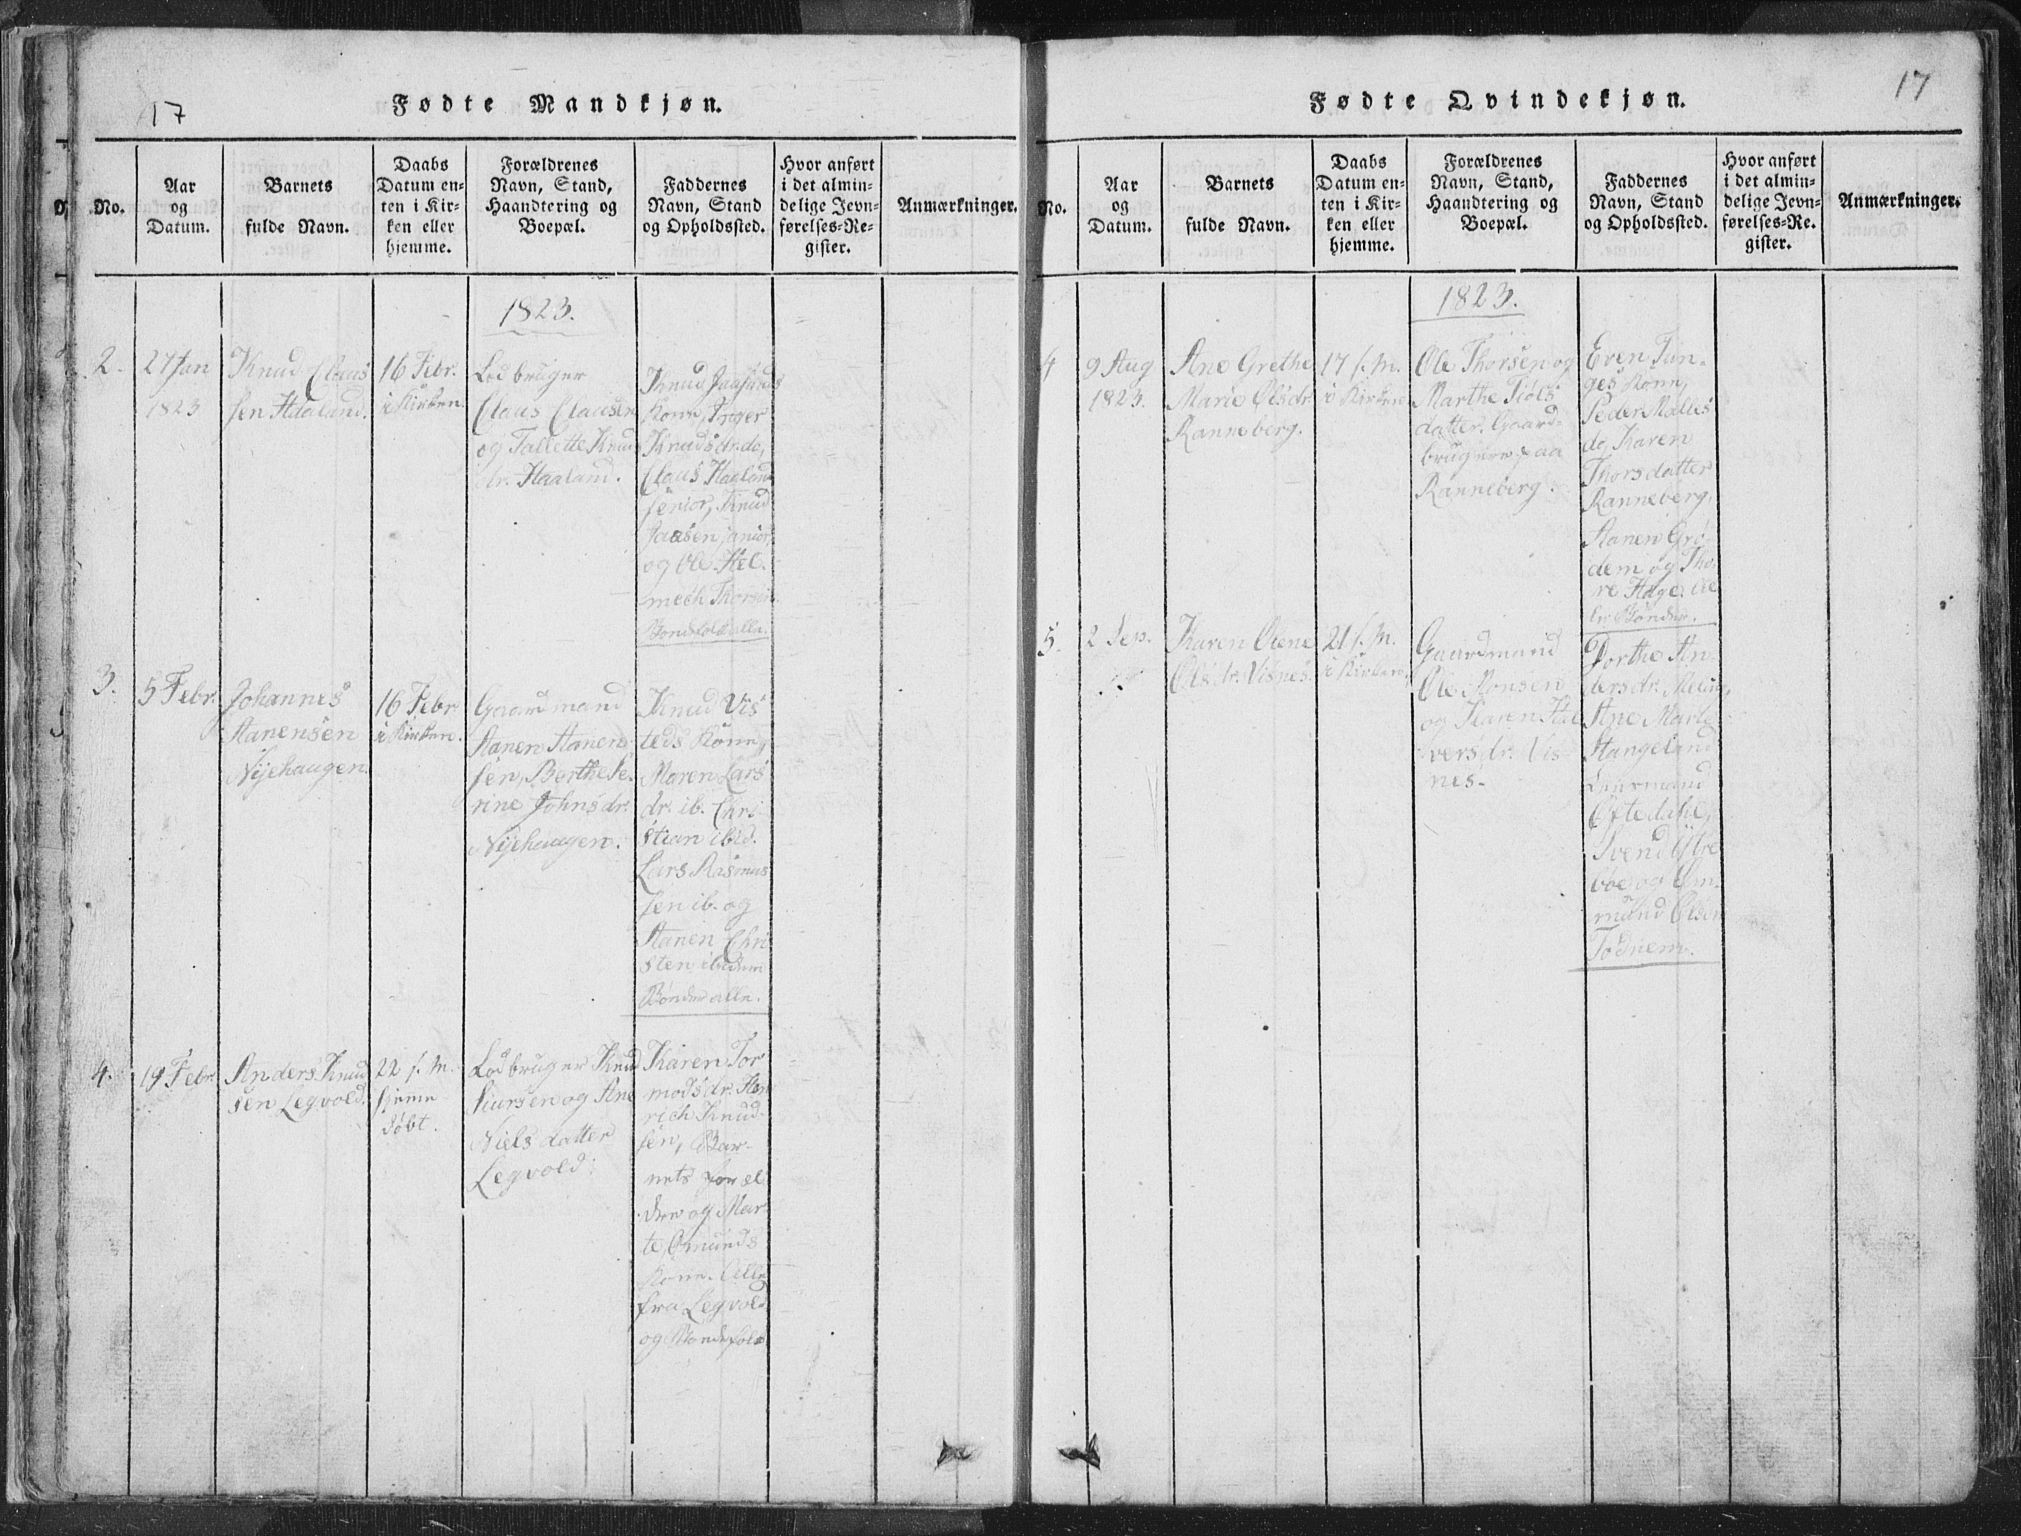 17
Fødte Mandkjøn.
No.
Aar
og
Datum.
Barnets
fulde Navn.
Daabs
Datum en-
ten i Kir-
ken eller
hjemme.
Forældrenes
Navn, Stand,
Haandtering og
Boepæl.
Faddernes
Navn, Stand
og Opholdssted.
Hvor anført
i det almin-
delige Jevn-
førelses-Re-
gister.
Anmærkninger.
1823.
2.
27 Jan
1823
Knud Claus
sen Haaland.
16 Febr.
i Kirken.
Lodbruger
Claus Clausen
og Tallette Knuds
dr. Haaland.
Kone, Inger
Knudsdr. do,
Claus Haaland
senior, Knud
Jaasen junior
og Ole Hel-
mech Thorsen
Bondefolk alle.
3.
5 Febr.
Johannes
Aanensen
Nijehaugen.
16 Febr
i Kirken.
Gaardmand
Aanen Aanen
sen, Berthe Se-
rine Johnsdr.
Nijehaugen.
Knud Vis
teds Kone,
Maren Lars
dr. ib. Chri
stian ibid.
Lars Rasmus
sen ib. og
Aanen Chri
sten ibidem
Bønder alle.
4.
19 Febr.
Anders Knud
sen Legvold.
22 s. M.
hjemme
døbt.
Lodbruger Knud
Siursen og Ane
Niels datter
Legvold.
Karen Tor
modsdr. Hen
rich Knud-
sen, Bar-
nets Foræl
dre og Mar
te Omunds
Kone. Alle
fra Legvold
og Bondefolk
17
Fødte Qvindekjøn.
No.
Aar
og
Datum.
Barnets
fulde Navn.
Daabs
Datum en-
ten i Kir-
ken eller
hjemme.
Forældrenes
Navn, Stand,
Haandtering og
Boepæl.
Faddernes
Navn, Stand
og Opholdssted.
Hvor anført
i det almin-
delige Jevn-
førelses-Re-
gister.
Anmærkninger.
1823.
4
9 Aug
1823.
Ane Grethe
Marie Olsdr.
Ranneberg.
17 s. M.
i Kirken
Ole Thorsen og
Marthe Siøls
datter. Gaard-
brugere paa
Ranneberg.
Even Tun-
ges Kone,
Peder Malles
do, Karen
Thorsdatter
Ranneberg,
Aanen Grø-
dem og Tho
re Hage. Al
le Bønder.
5.
2 Sep.
Karen Oline
Olsdr. Visnes.
21 s. M.
i Kirken.
Gaardmand
Ole Monsen
og Karen Hal
versdr. Vis-
nes.
Dorthe An-
dersdr. Meling,
Ane Marte
Stangeland
Oftedahl,
Svend Østre
boe og Om-
mund Olsen
Todnem.